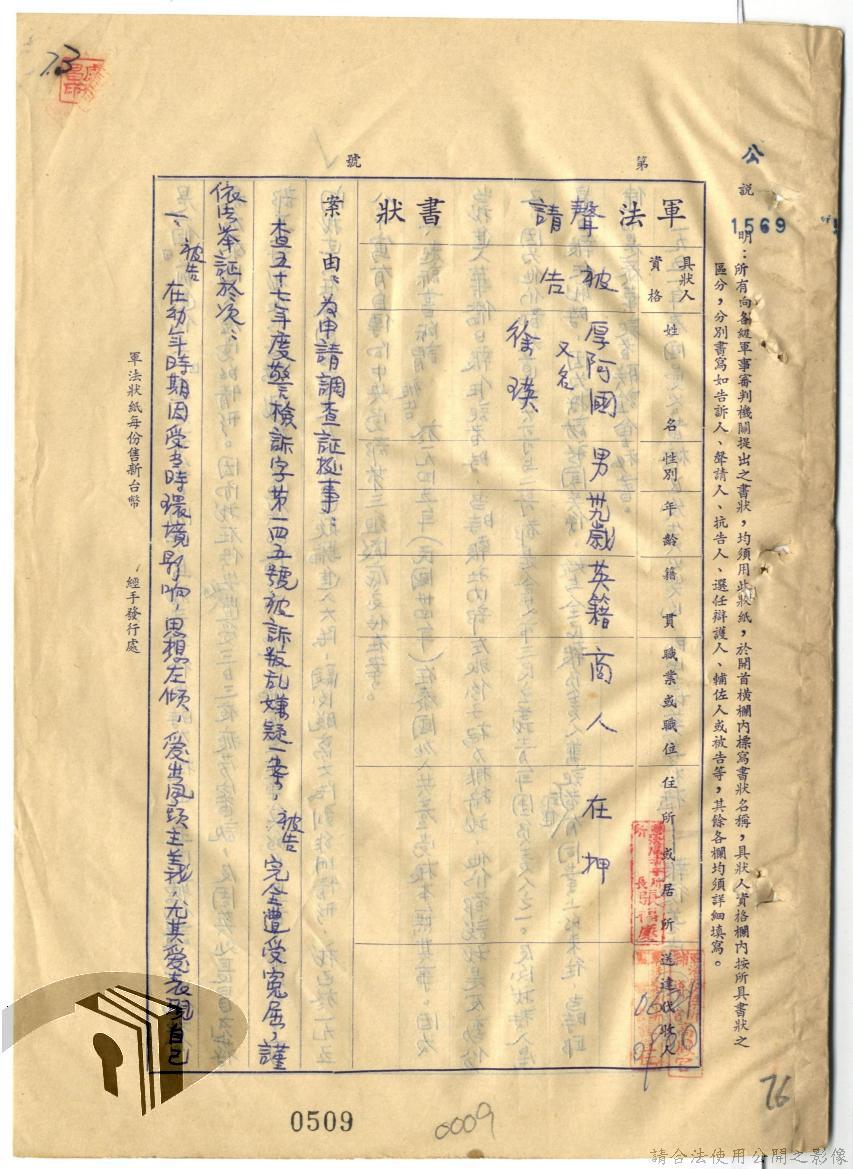 73
公
1569
第
號
說明：所有向各級軍事審判機關提出之書狀，均須用此狀紙，於開首橫欄內標寫書狀名稱，具狀人資格欄內按所具書狀之
區分，分別書寫如告訴人、聲請人、抗告人、選任辯護人、輔佐人或被告等，其餘各欄均須詳細填寫。
軍法聲請書狀
具狀人資格
姓名
性別
年齡
籍貫
職業或職位
住所或居所
送達代收人
被告
厚阿國 男 卅九歲 英籍 商人 在押
又名
徐瑛
案由：為申請調查証據事：
查五十七年度警檢訴字第一四五號被訴叛乱嫌疑一案，被告完全遭受寃屈，謹
依法举証於次：
一、被告在幼年時期因受当時環境影响，思想左傾，爱出风頭主義，尤其爱表現自己
軍法狀紙每份售新台幣
經手發行處
0509
0009
76
請合法使用公開之影像